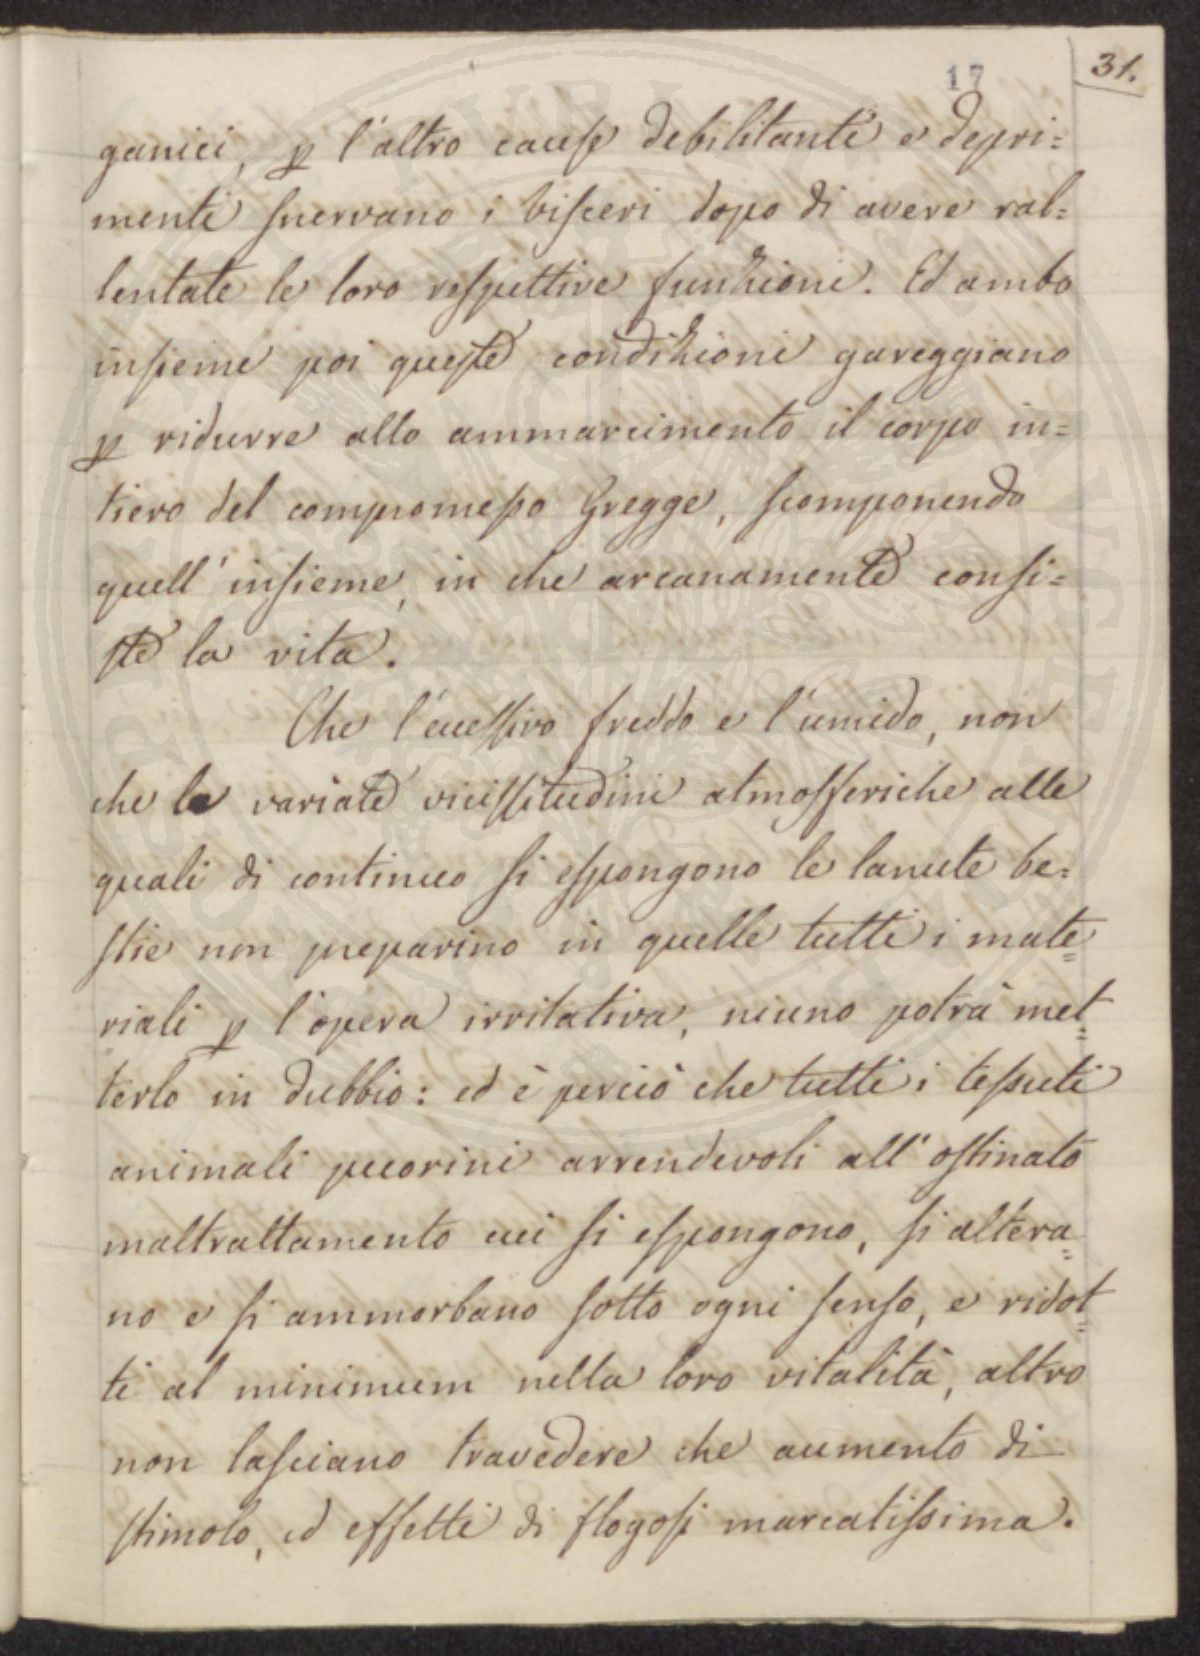 17
31.
ganici, p l'altro cause debilitanti e depri=
menti snervano i visceri dopo di avere ral=
lentate le loro respettive funzioni. Ed ambo
insieme poi queste condizioni gareggiano
p ridurre allo ammarcimento il corpo in=
tiero del compromesso Gregge, scomponendo
quell'insieme, in che arcanamente consi=
ste la vita.
Che l'eccessivo freddo e l'umido, non
che le variate vicissitudini atmosferiche alle
quali di continuo si espongono le lanute be=
stie non preparino in quelle tutti i mate=
riali p l'opera irritativa, niuno potrà met=
terlo in dubbio: ed è perciò che tutti i tessuti
animali pecorini arrendevoli all'ostinato
maltrattamento cui si espongono, si altera=
no e si ammorbano sotto ogni senso, e ridot=
ti al minimum nella loro vitalità, altro
non lasciano travedere che aumento di
stimolo, ed effetti di flogosi marcatissima.